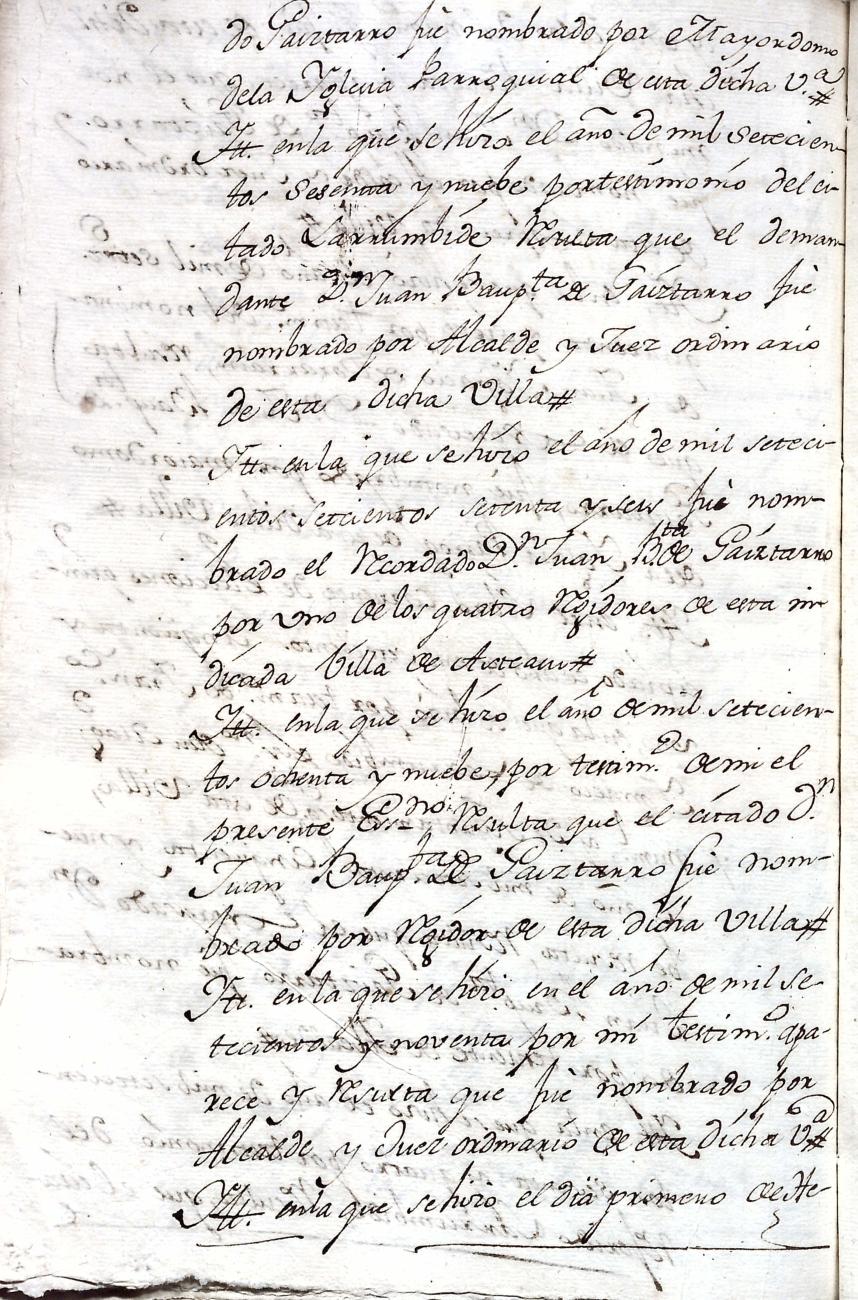 do Gaiztarro fuè nombrado por Mayordomo
dela Yglesia Parroquial de esta dicha V.ª #
Ytt. enla que se hizo el año de mil setecien-
tos Sesenta y nuebe por testimonio del ci-
tado Larrumbide Resulta que el deman-
dante D.n Juan Baup.ta de Gaiztarro fuè
nombrado por Alcalde y Juez ordinario
de esta dicha Villa #
Ytt. enla que se hizo el año de mil seteci-
entos setecientos setenta y seis fuè nom-
brado el Recordado D.n Juan B.ta de Gaiztarro
por uno de los quatro Regidores de esta in-
dicada Villa de #
Ytt. enla que se hizo el año de mil setecien-
tos ochenta y nuebe, por testim.o de mi el
presente Ess.no Resulta que el citado D.n
Juan Baup.ta de Gaiztarro fuè nom-
brado por Regidor de esta dicha Villa #
Ytt. enla que se hizo en el año de mil se-
tecientos y noventa por mi testim.o apa-
rece y Resulta que fuè nombrado por
Alcalde y Juez ordinario de esta dicha V.ª #
Ytt. enla que se hizo el dia primero de He-